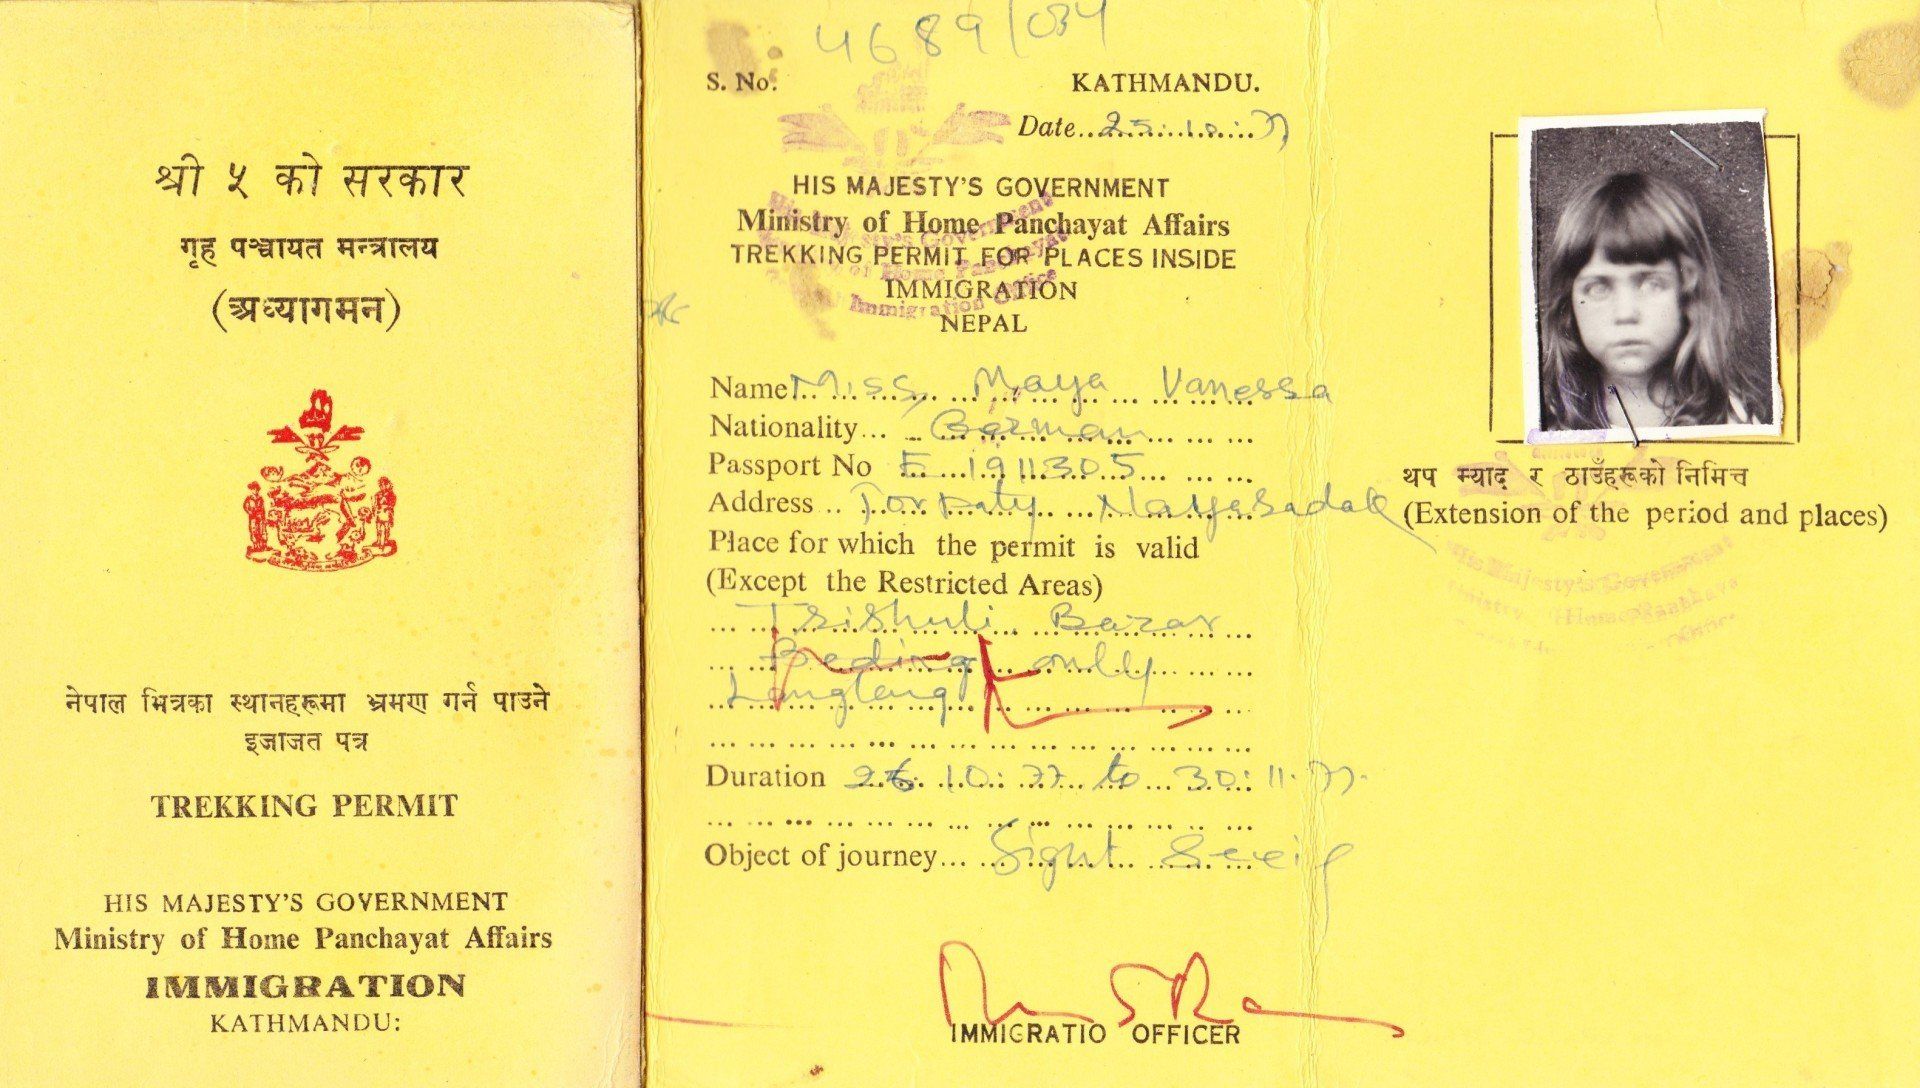 श्री ५ को सरकार
गृह पञ्चायत मन्त्रालय
(अध्यागमन)
नेपाल भित्रका स्थानहरूमा भ्रमण गर्न पाउने
इजाजत पत्र
TREKKING PERMIT
HIS MAJESTY'S GOVERNMENT
Ministry of Home Panchayat Affairs
IMMIGRATION
KATHMANDU:
4689/034
S. No. KATHMANDU.
Date 25.10.77
HIS MAJESTY'S GOVERNMENT
Ministry of Home Panchayat Affairs
TREKKING PERMIT FOR PLACES INSIDE
IMMIGRATION
NEPAL
Name Miss, Maya Vanessa
Nationality German
Passport No E 1911305
Address
Place for which the permit is valid
(Except the Restricted Areas)
Trishuli Bazar
Beding only
Langtang
Duration 26.10.77 to 30.11.77.
Object of journey Sight Seeing
IMMIGRATIO OFFICER
थप म्याद र ठाउँहरूको निमित्त
(Extension of the period and places)
His Majesty's Government